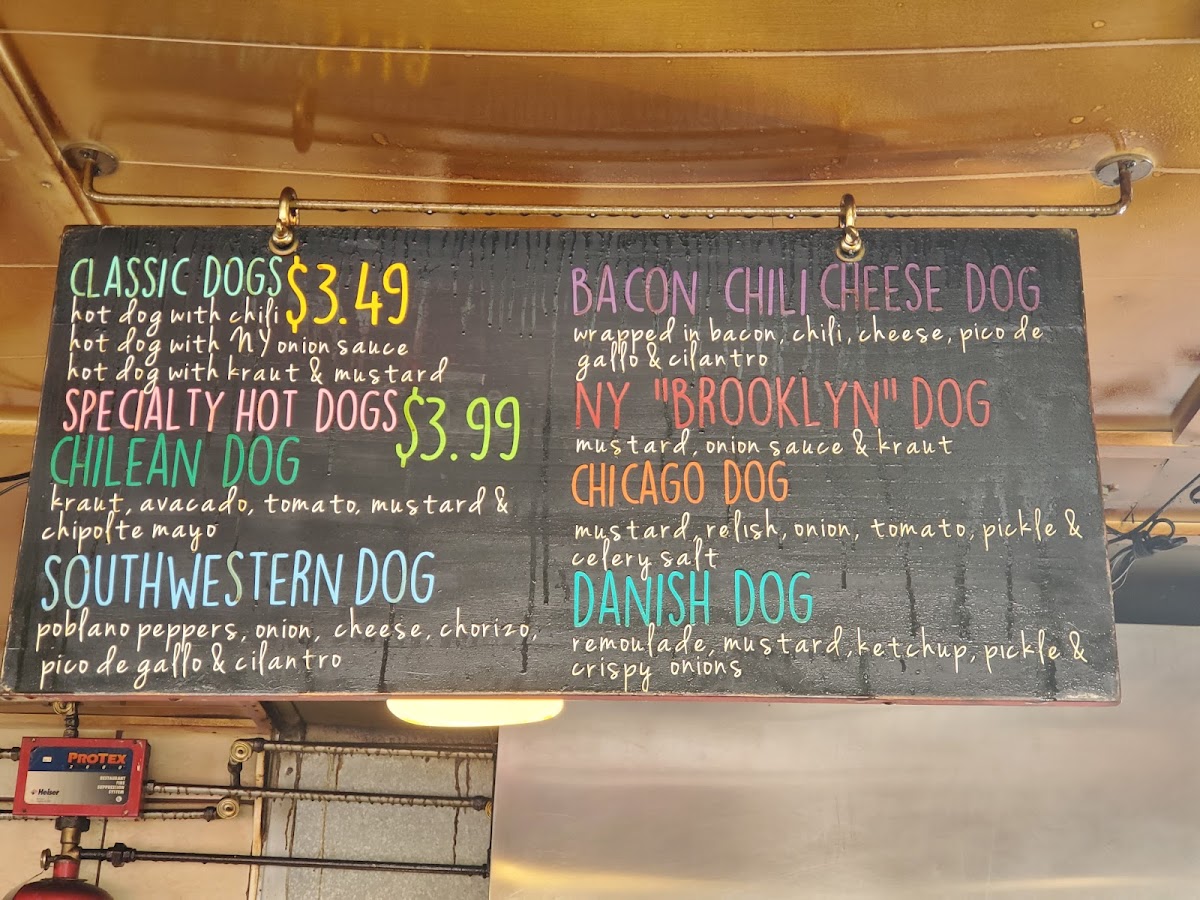 CLASSIC DOGS $3.49
hot dog with chili
hot dog with NY onion sauce
hot dog with kraut & mustard
SPECIALTY HOT DOGS $3.99
CHILEAN DOG
kraut, avacado, tomato, mustard &
chipolte mayo
SOUTHWESTERN DOG
poblano peppers, onion, cheese, chorizo,
pico de gallo & cilantro
BACON CHILI CHEESE DOG
wrapped in bacon, chili, cheese, pico de
gallo & cilantro
NY "BROOKLYN" DOG
mustard, onion sauce & kraut
CHICAGO DOG
mustard, relish, onion, tomato, pickle &
celery salt
DANISH DOG
remoulade, mustard, ketchup, pickle &
crispy onions
PROTEX
Heiser
RESTAURANT
FIRE
SUPPRESSION
SYSTEM